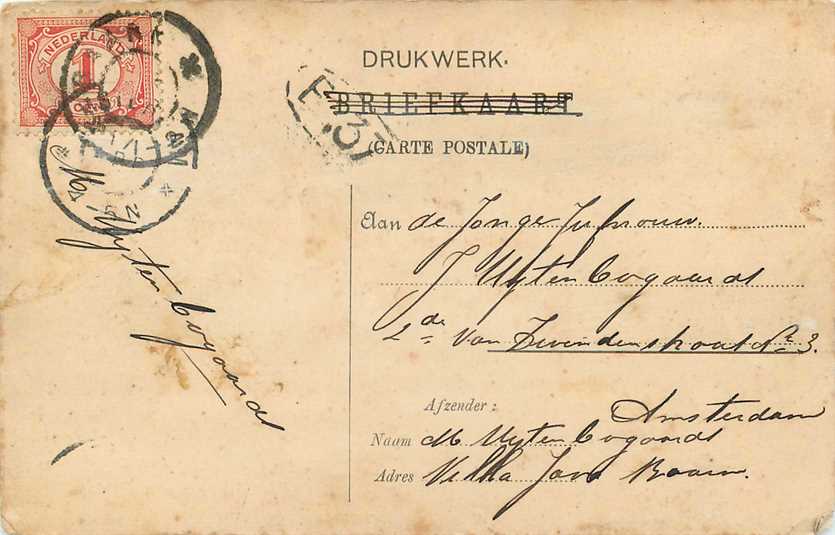 NEDERLAND
1
DRUKWERK.
BRIEFKAART
(CARTE POSTALE)
Aan de Jonge Jufrouw.
J Uytenbogaardt
2de Van Swindenstraat No 3.
Amsterdam
Afzender:
Naam M Uytenbogaardt
Adres Villa Java Baarn.
M. Uytenbogaardt